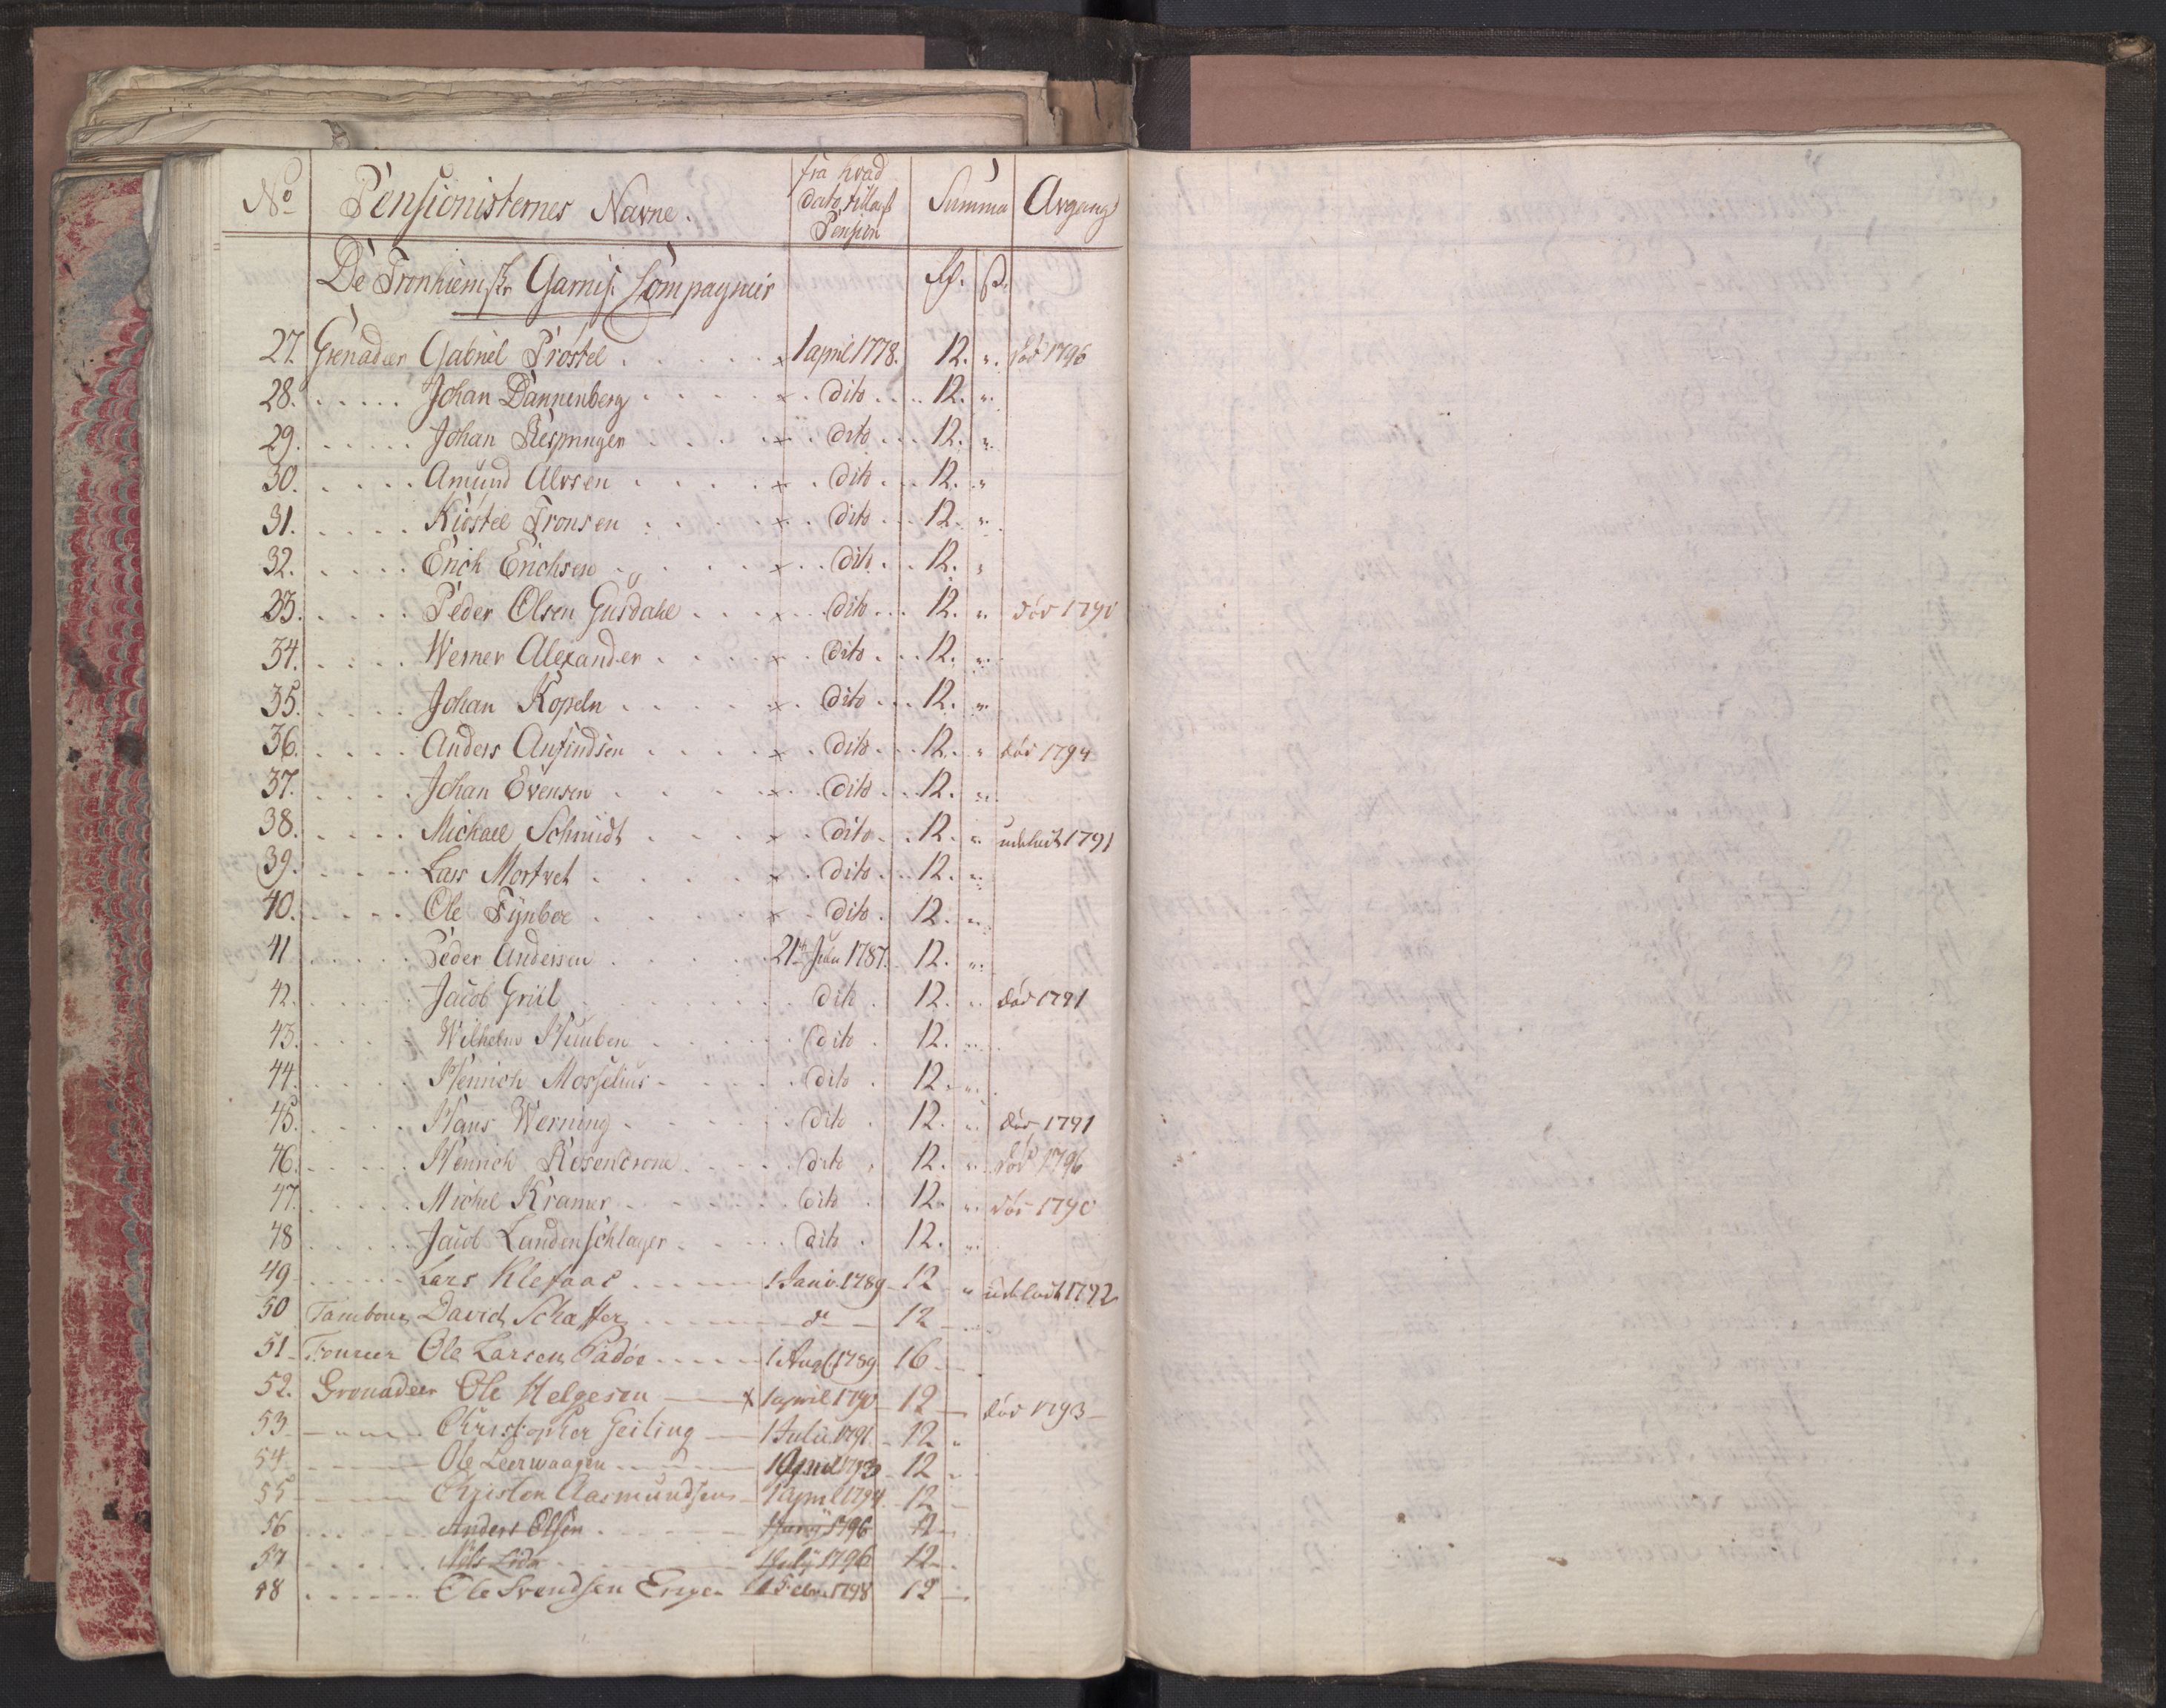 No Pensionisternes Navne. fra hvad dato tillagt Pension Summa Avgang
De Tronhiemske Garnis: Compagnier Rd. s.
27. Grenadeer Gabriel Prostel . . . . x 1 april 1778. 12. „. død 1796
28. . . . . . Johan Dannenberg . . . . x . dito . . . 12. „.
29. . . . . . Johan . . . . x . dito . . . 12. „.
30. . . . . Amund Alvsen . . . . x . dito . . . 12. „
31. . . . . Kiöstel Tronsen . . . . x . dito . . . 12. „.
32. . . . . Erich Erichsen . . . . x . dito . . . 12. „
33. . . . . Peder Olsen Gusdahl . . . x . dito . . . 12. „. død 1790
34. . . . . Werner Alexander . . . . x . dito . . . 12. „.
35. . . . . Johan Kopeln . . . . x . dito . . . 12. „.
36. . . . . Anders Anfindsen . . . . x . dito . . . 12. „ død 1794
37. . . . . Johan Evensen . . . . x . dito . . . 12. „.
38. . . . . Michael Schmidt . . . . x . dito . . 12. „. udeludt 1791
39. . . . . Lars Mortvet . . . . x . dito . . . 12. „.
40. . . . . Ole Fÿnboe . . . . x . dito . 12. „.
41 . . . . . Peder Andersen . . . . . 21de Julii 1787. 12. „.
42. . . . . . Jacob Grül . . . . . dito . 12. „. død 1791
43. . . . . Wilhelm . . . . . dito . 12. „.
44. . . . . Henrich Mosselius . . . . dito . 12. „.
45. . . . . Hans Werning . . . . . dito . 12. „. død 1791
46. . . . . Henrich Rosencrone . . . . dito . 12. „. død 1796
47. . . . . Michel Kramer . . . . dito . 12. „. død 1790
48 . . . . . Jacob Landenschlager . . . . dito . 12. „.
49 . . . . . Lars Klefaas . . . . 1 Janv. 1789 12 „ udeludt 1792
50 Tambour David Schaffer . . . . do 12 „.
51 Foureer Ole Larsen Rådøe . . . . 1 Aug. 1789 16
52. Grenadeer Ole Helgesen x 1 april 1790 12 død 1793
53 Christopher Geiling 1 Julii 1791. 12 „
54 Ole Leerwaagen 1 April 1793 12 „
55 Christen Aasmundsen 1 april 1794. 12
56 . . . . . Anders Olsen . . . . 1 Janÿ 1796 12
57 . . . . . Nils Lida . . . . 1 Julÿ 1796 12
58 . . . . . Ole Svendsen 1 Febr. 1798 12